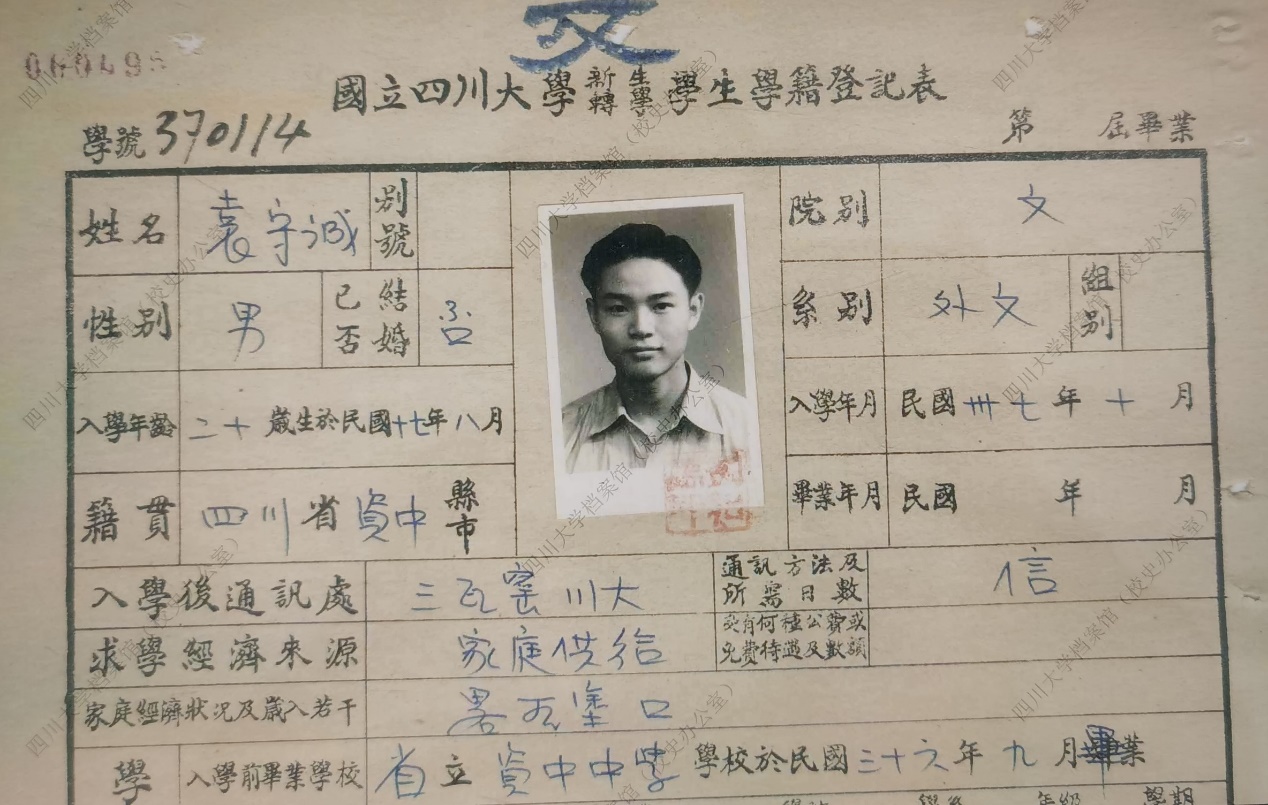 文
國立四川大學新生轉學學生學籍登記表
學號370114
第 屆畢業
姓名 袁守诚 別號 院别 文
性别 男 已否結婚 否 系别 外文 組别
入學年齡 二十 歲生於民國十七年八月 入學年月 民國卅七年十月
籍貫 四川省資中縣市 畢業年月 民國 年 月
入學後通訊處 三瓦窑川大 通訊方法及所需日數 信
求學經濟來源 家庭供给 受有何種公費或免費待遇及數額
家庭經濟狀況及歲入若干
學 入學前畢業學校 省立資中中学 學校於民國三十六年九月畢業
四川大学档案馆（校史办公室）